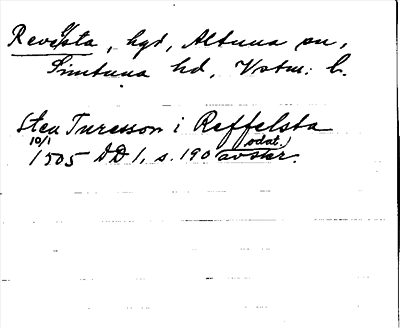 Revelsta, hgd, Altuna sn,
Simtuna hd, Vstm. l.
Sten Turesson i Reffelsta
10/1 1505 DD 1, s. 190 (odat.) avskr.